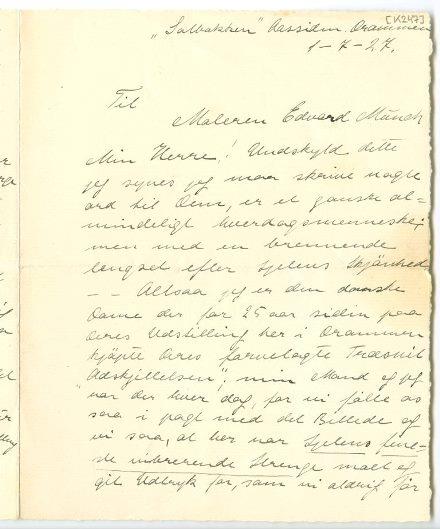 [K247]
"Solbakken" Aassiden. Drammen
1-7-27.
Til
Maleren Edvard Münch
Min Herre! Undskyld dette
jeg synes jeg maa skrive nogle
ord til Dem, er et ganske al=
mindeligt hverdagsmenneske;
men med en brennende
lengsel efter Sjelens Skjänheds
-- Altsaa jeg er den danske
Dame der for 25 aar siden paa
deres Udstilling her i Drammen
kjøpte deres farvelagte Træsnit
"Adskjillelsen", min Mand og jeg
var der hver dag, for vi følte os
saa i pagt med det Billede og
vi saa, at her var Sjelens fine=
ste vibrerende Strenge malt og
git Udtryk for, som vi aldrig før